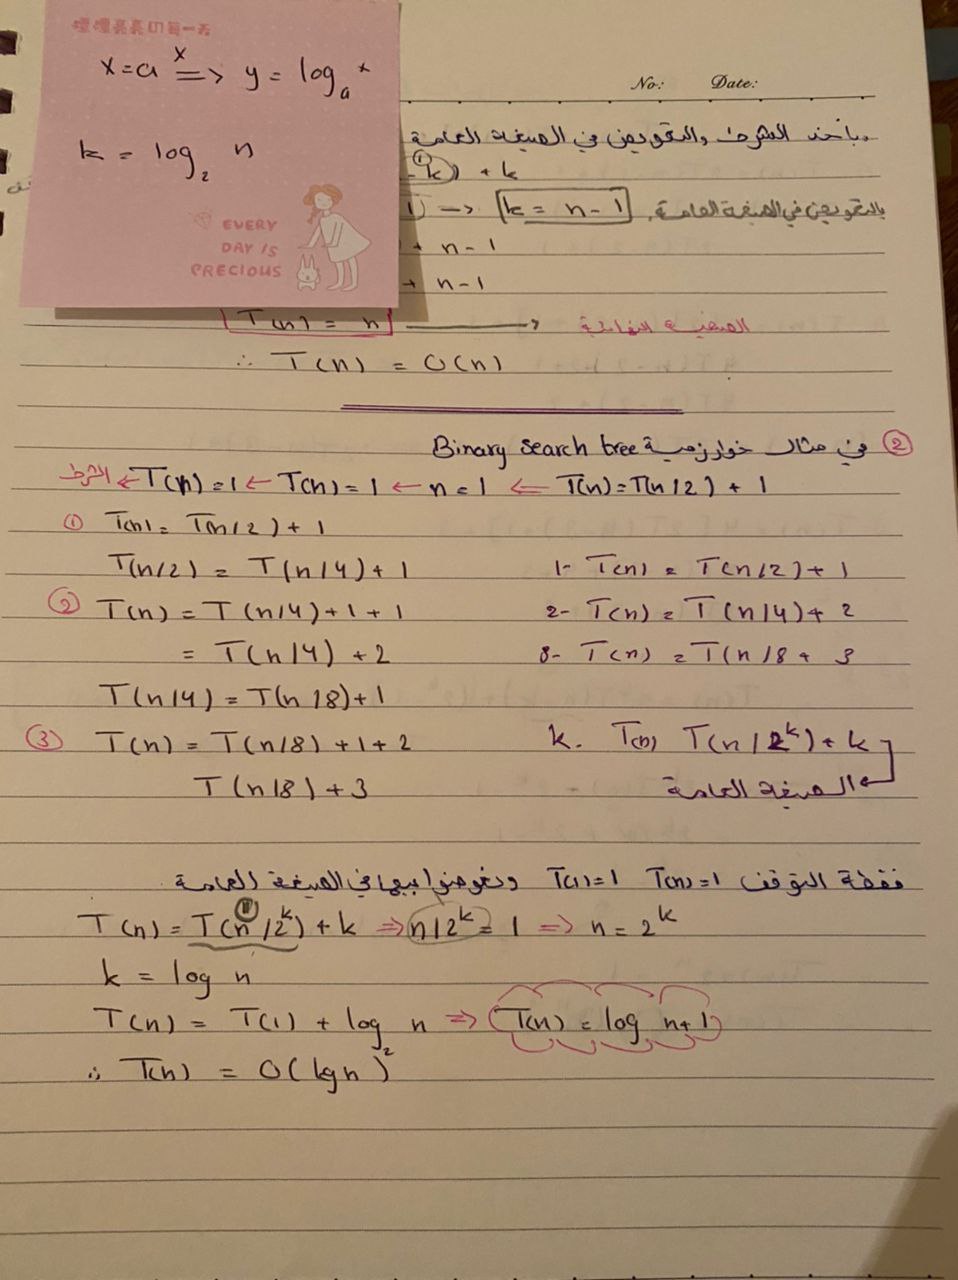 x=a^x => y = log_a x
k = log_2 n
EVERY
DAY IS
PRECIOUS
No: Date:
بأخذ الشرط والتعويض في الصيغة العامة
k) + k
1) → k = n-1 بالتعويض في الصيغة العامة
+ n-1
+ n-1
T(n) = n → الصيغة النهائية
∴ T(n) = O(n)
② في مثال خوارزمية Binary search tree
الشرط ← T(n)=1 ← T(n)=1 ← n=1 ⇐ T(n)=T(n/2) + 1
① T(n) = T(n/2) + 1
T(n/2) = T(n/4) + 1
② T(n) = T(n/4)+1+1
= T(n/4) +2
T(n/4) = T(n/8)+1
③ T(n) = T(n/8) +1+2
T(n/8) +3
1- T(n) = T(n/2) + 1
2- T(n) = T(n/4)+ 2
3- T(n) = T(n/8 + 3
k. T(n) T(n/2^k) + k
الصيغة العامة
نقطة التوقف T(n)=1 T(1)=1 ونعوض بيها في الصيغة العامة
T(n) = T(n/2^k) + k => n/2^k = 1 => n = 2^k
k = log n
T(n) = T(1) + log_2 n => T(n) = log n+1
∴ T(n) = O(lgn)